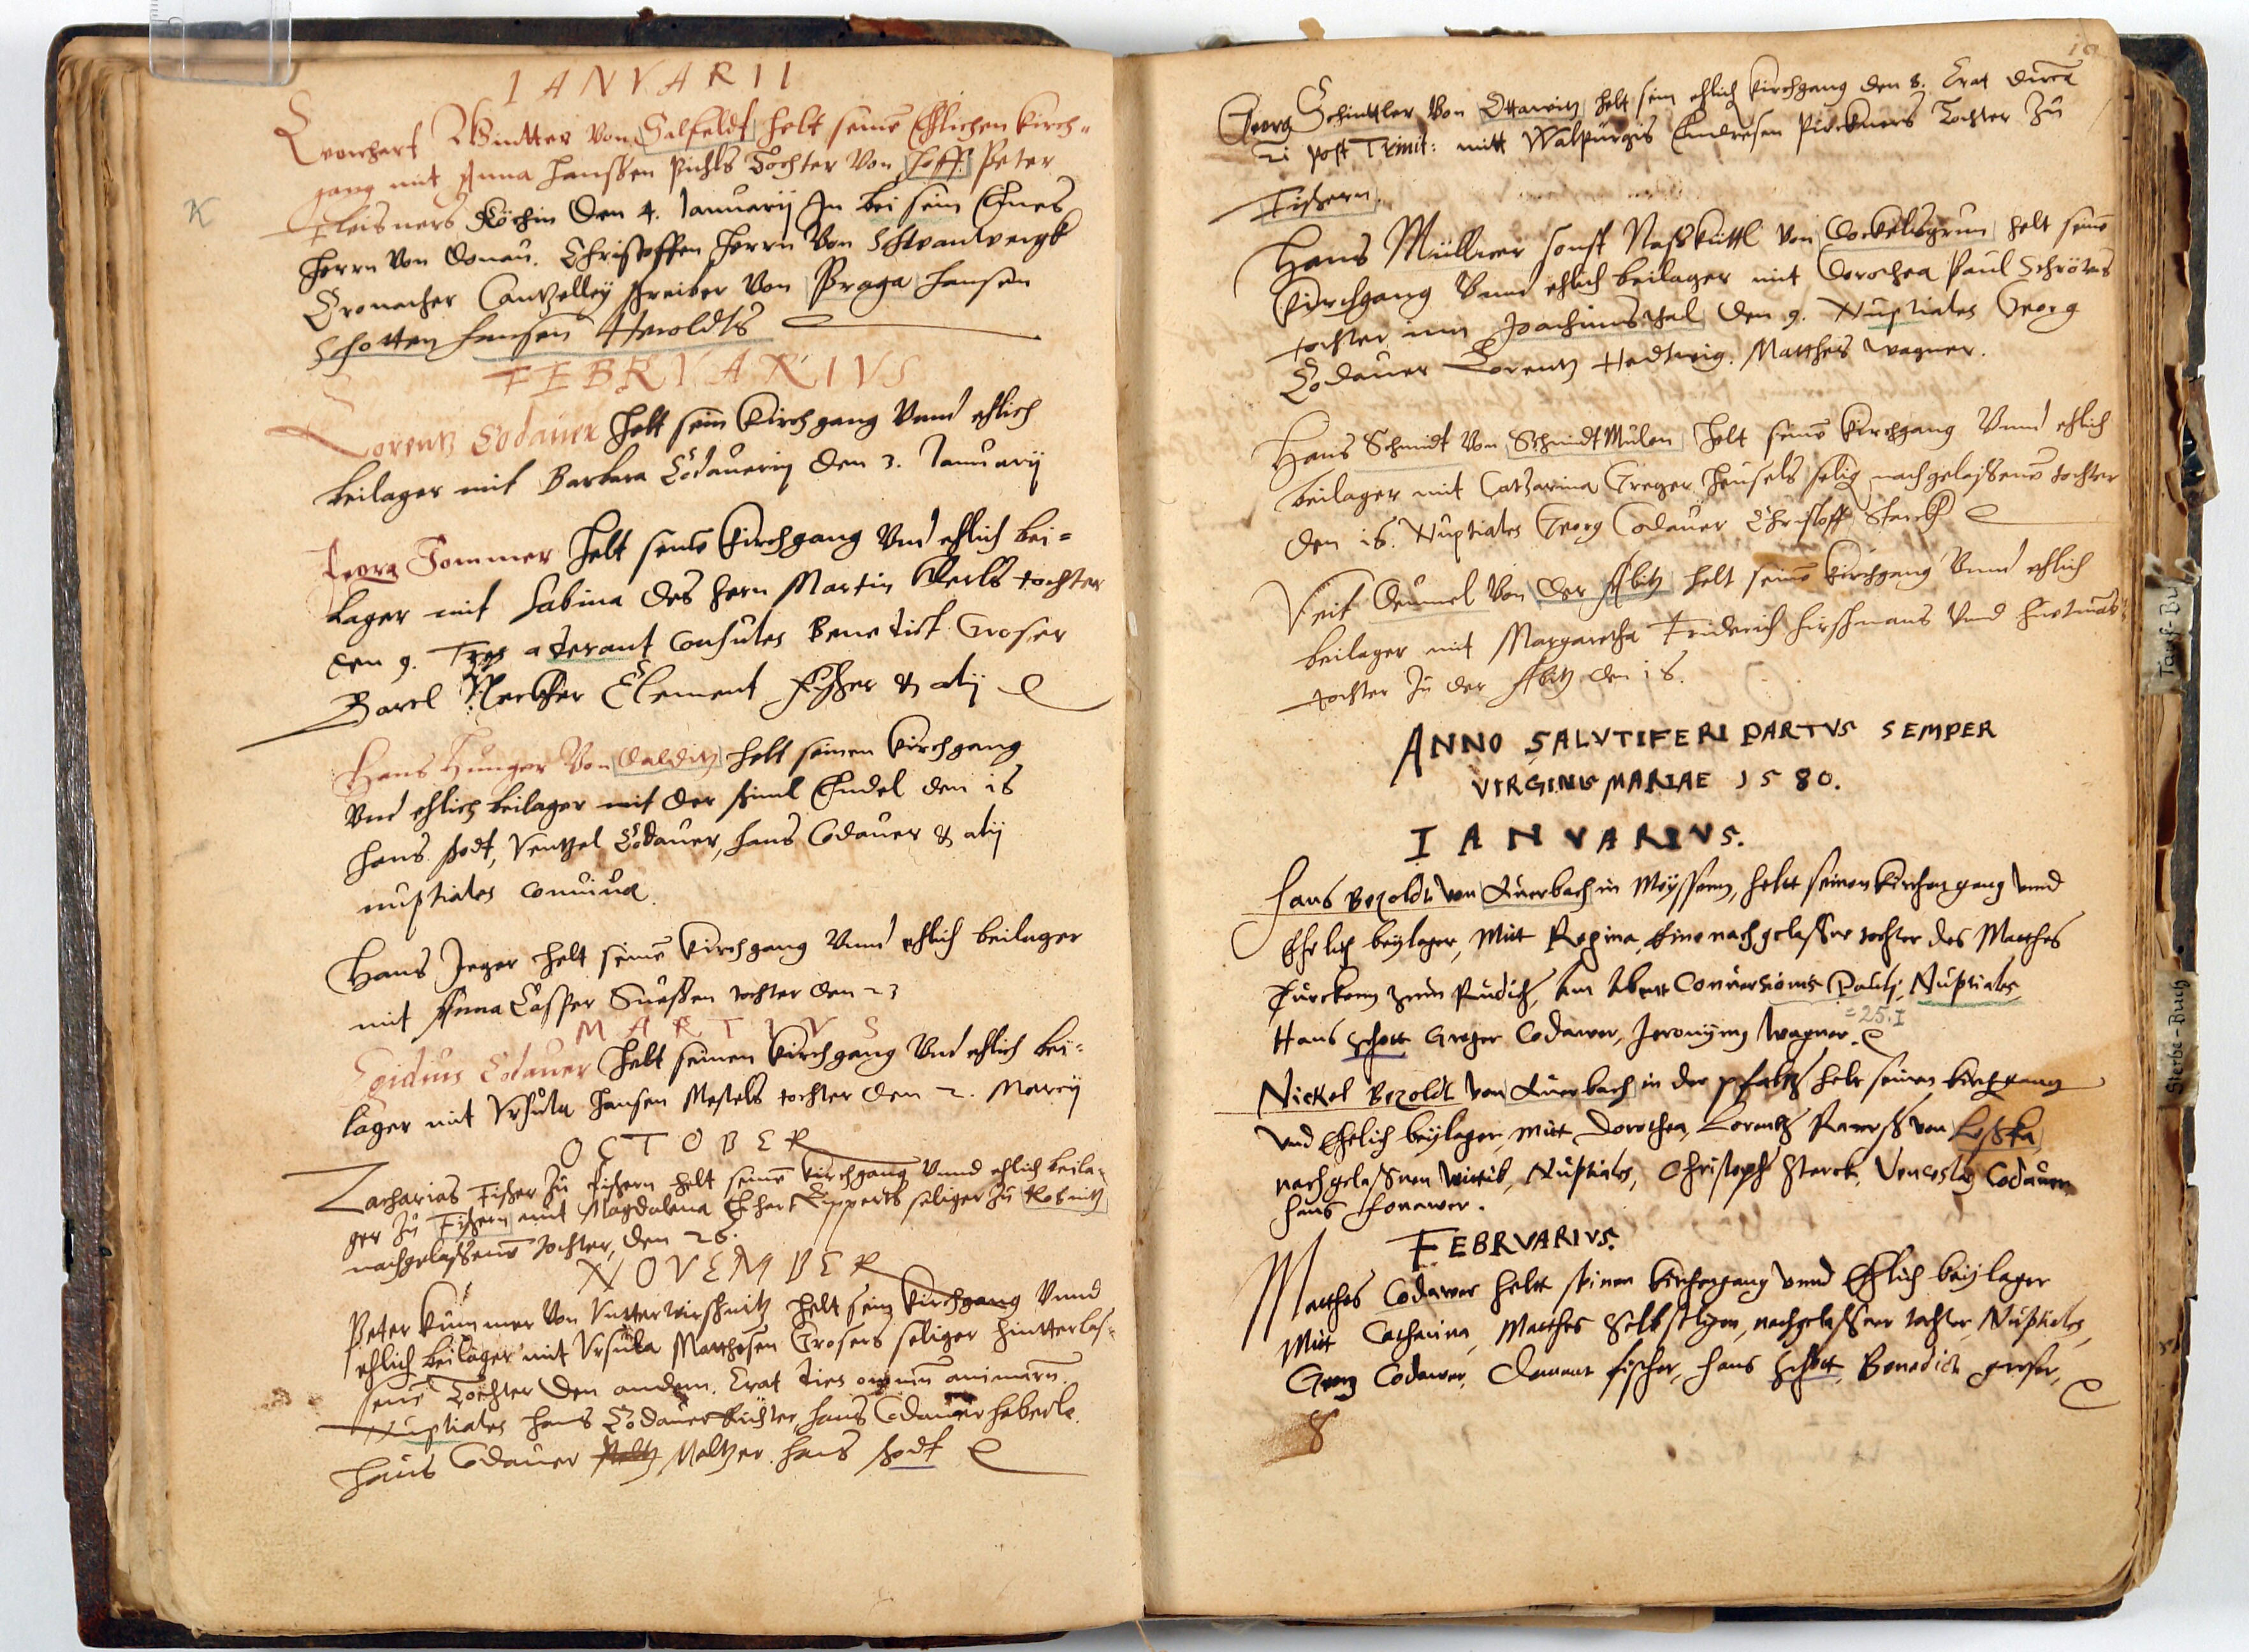 IANVARII
Leonhart Windtter von Salfeldt helt seinē Ehlichen kirch-
gang mit Anna Hanssen Pichls Tochter von Hoff. Peter
Fleisners Köchin den 4. Januarij In bei sein Ehnes
Herrn von Donau. Christoffen Herrn von Schwanbergk
Cronacher Cantzelleÿ schreiber von Praga Hansen
Schotten Hansen Heroldts
FEBRVARIVS
Lorentz Codauer helt sein kirchgang Vnnd ehlich
beilager mit Barbara Codauerin den 3. Januarij
Georg Sommer helt seinē kirchgang Vnd ehlich bei-
lager mit Sabina des Hern Martin tochter
den 9. Tres aderant Consules Benedict Groser
Bartl Clement Fischer & alij
Hans Hunger von Dalditz helt seinen kirchgang
Vnd ehlich beilager mit der den 18
Hans schodt, Ventzel Codauer, Hans Codauer & alij
nuptiales conuiua.
Hans Jeger helt seinē kirchgang Vnnd ehlich beilager
mit Anna Casper Suessen tochter den 23
MARTIVS
Egidius Codauer helt seinen kirchgang Vnd ehlich bei-
lager mit Vrsula Hansen Mestels tochter den 2. Marcij
OCTOBER
Zacharias Fischer zu Fischern helt seinē kirchgang Vnnd ehlich beila-
ger zu Fischern mit Magdalena Erhart Ripperts seliger zu Kosnitz
nachgelassenē tochter, den 26.
NOVEMBER
Peter Kummer von Vntterwirschnitz helt sein kirchgang Vnnd
ehlich beilager mit Vrsula Matthesen Grosers seliger hintterlas-
senē Tochter den andern. Erat dies omnium animarum.
Nuptiales Hans Codauer Richter, Hans Codauer heberle
Hans Codauer Maltzer. Hans schodt
10
Georg Schindtler von Ottawitz helt sein ehlich kirchgang den 8. Erat durca
21 post Trinit: mitt Walpurgis Endresen Pirckners Tochter zu
Fischern.
Hans Müllner sonst Nassküttl von Dockelsgrun helt seinē
kirchgang Vnnd ehlich beilager mit Dorothea Paul Schröters
tochter inn Joachimsthal den 9. Nuptiales Georg
Codauer Lorentz Hedtwig. Matthes wagner.
Hans Schmidt von Schmidt Mulen helt seinē kirchgang Vnnd ehlich
beilager mit Catharina Greger Heusels selig nachgelassenē tochter
den 16. Nuptiales Georg Codauer Christoff Starck
Veit Deumel von der Abitz helt seinē kirchgang Vnnd ehlich
beilager mit Margaretha Friderich Hirschmans Vnnd
tochter zu der Abitz den 16.
ANNO SALVTIFERI PARTVS SEMPER
VIRGINIS MARIAE 1580.
IANVARIVS.
Hans Bezoldt von Auerbach in Meyssenn, heltt seinen kirchengang vnnd
Ehrlich beylager, Mitt Regina, Eine nachgelassne tochter des Matthes
Türcken zum Rudich, Am Abent Conuersionis Pauli, Nuptiales,
= 25.I
Hans schott Greger Codawer, Jeronymy Wagner.
Nickel Bezoldt von Auerbach in der pfaltz helt seinen kirchgang
vnd Ehelich beylager, Mitt Dorothea, Lorentz von Lesska
nachgelassnen wittib, Nuptiales, Christoph Starck, Venceslaj Codauer
Hans Honawer.
FEBRVARIVS.
Matthes Codawer heltt seinen kirchengang vnnd Ehlich beylager
Mitt Catharina, Matthes Selb seligen, nachgelassner tochter, Nuptiales,
Georg Codawer, Clement fischer, Hans schott, Benedict groser,
8
Tauf-Bu
Sterbe-Buch